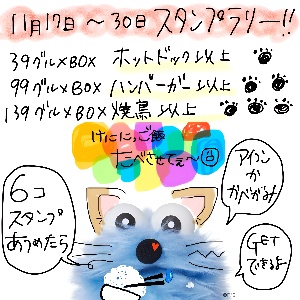 11月17日〜30日 スタンプラリー!!
39グルメBOX ホットドック以上
99グルメBOX ハンバーガー以上
139グルメBOX 焼鳥以上
けにに、ご飯
たべさせてぇ〜
6コ
スタンプ
あつめたら
アイコン
か
かべがみ
GET
できるよ